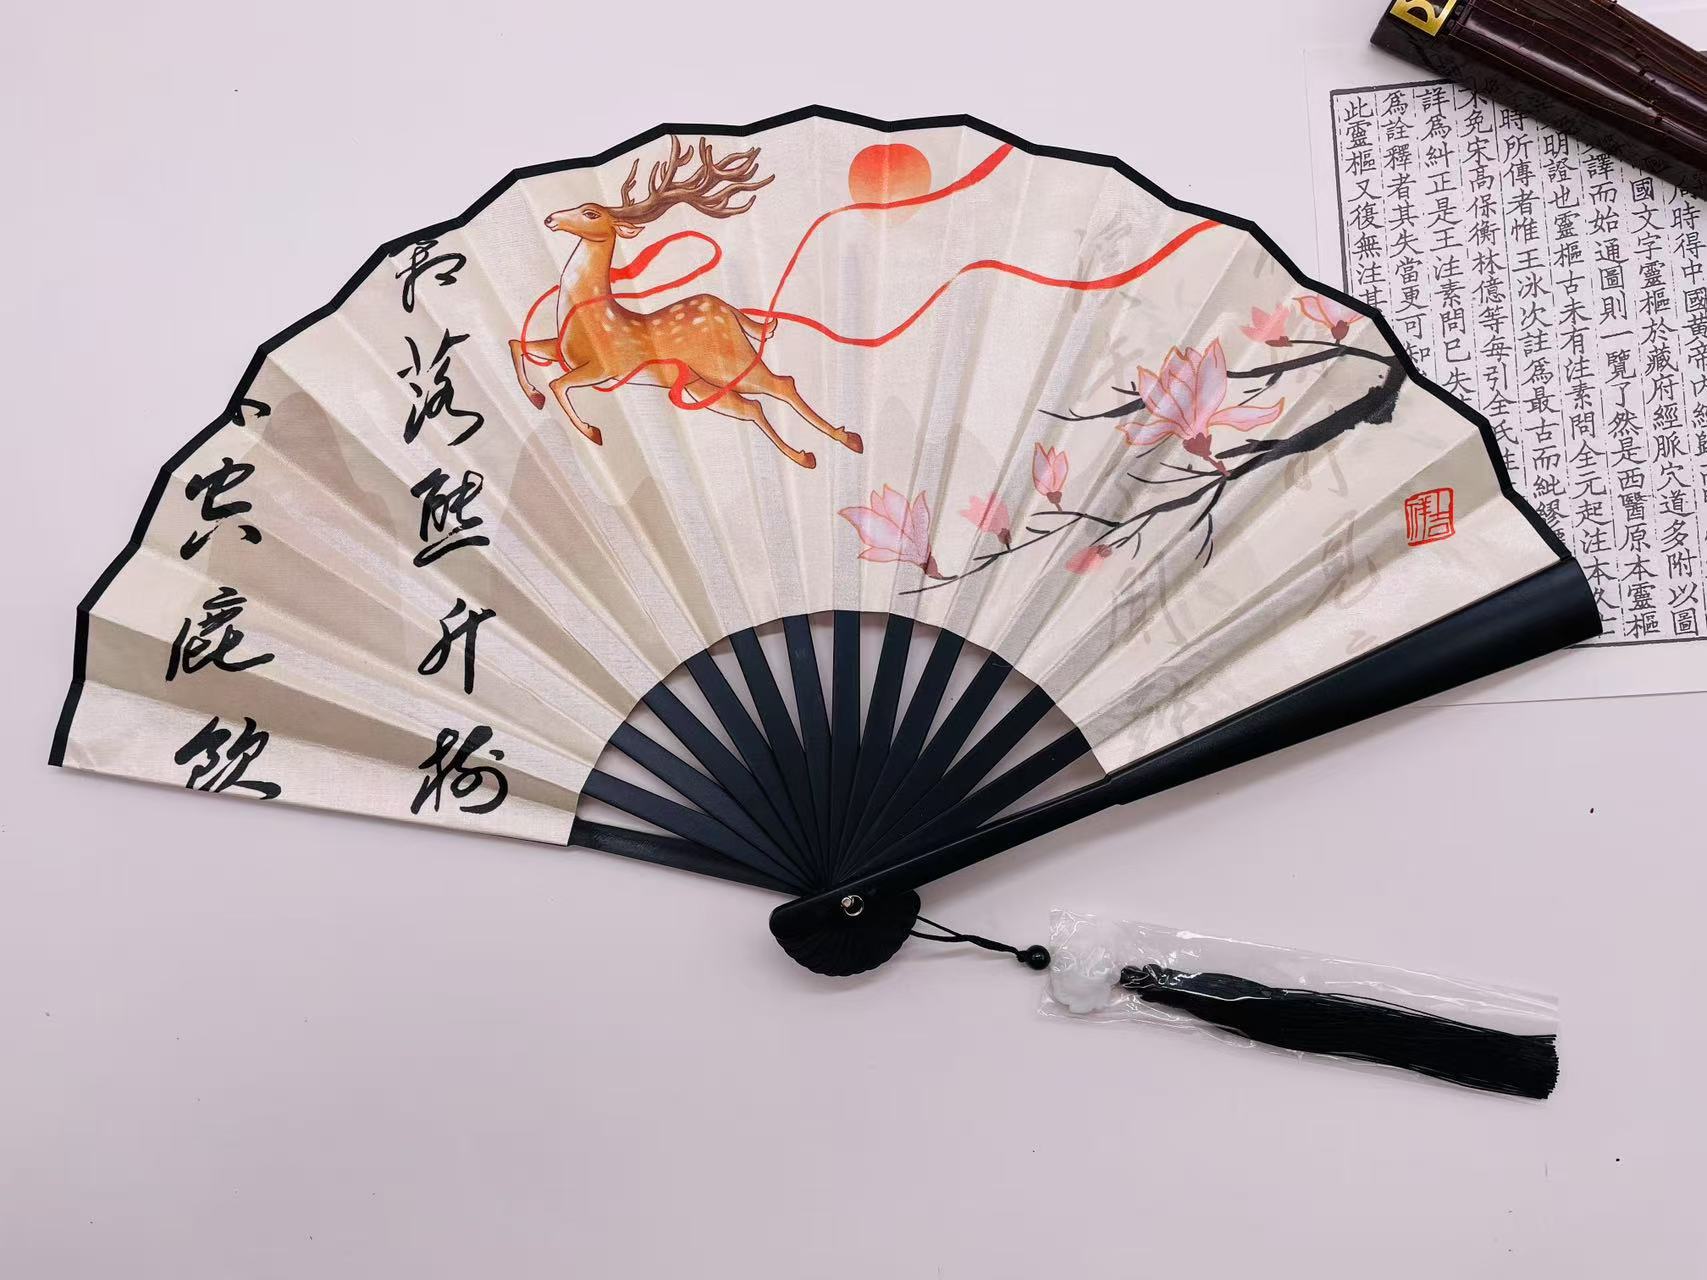 落熊升樹
空鹿飲
吉祥
時得中國黄帝内經
國文字靈樞於藏府經脈穴道多附以圖
譯而始通圖則一覽了然是西醫原本靈樞
明證也靈樞古未有注素問全元起注本久
時所傳者惟王冰次註爲最古而紕繆
不免宋高保衡林億等每引全氏
詳爲糾正是王注素問已失
爲詮釋者其失當更可知
此靈樞又復無注其